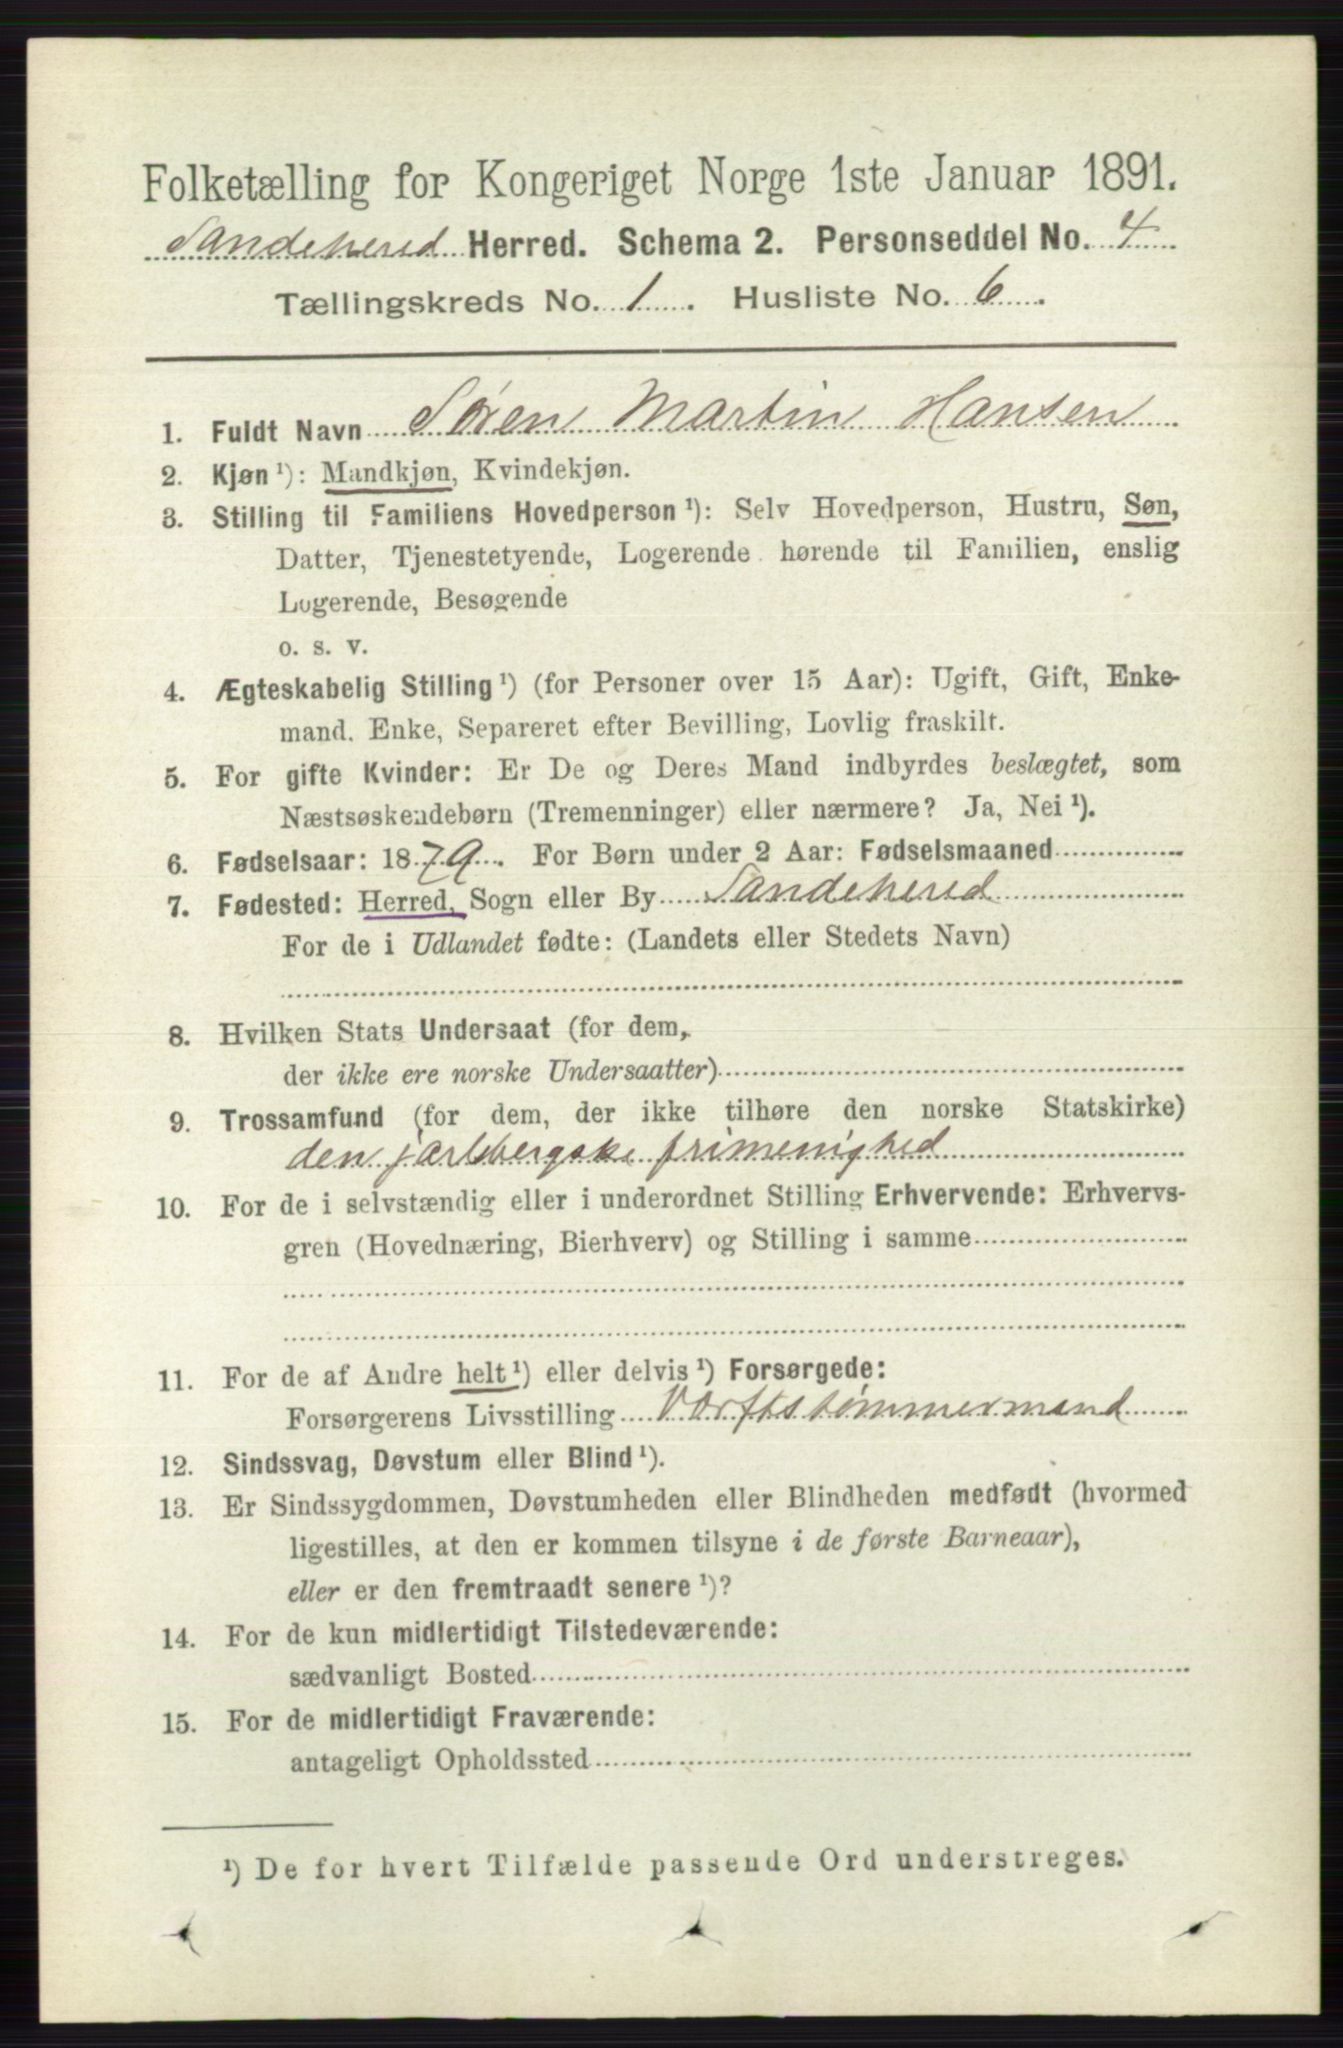 Folketælling for Kongeriget Norge 1ste Januar 1891.
Sandeherred Herred. Schema 2. Personseddel No. 4
Tællingskreds No. 1. Husliste No. 6.
1. Fuldt Navn Søren Martin Hansen
2. Kjøn ¹): Mandkjøn, Kvindekjøn.
3. Stilling til Familiens Hovedperson ¹): Selv Hovedperson, Hustru, Søn,
Datter, Tjenestetyende, Logerende hørende til Familien, enslig
Logerende, Besøgende
o. s. v.
4. Ægteskabelig Stilling ¹) (for Personer over 15 Aar): Ugift, Gift, Enke-
mand. Enke, Separeret efter Bevilling, Lovlig fraskilt.
5. For gifte Kvinder: Er De og Deres Mand indbyrdes beslægtet, som
Næstsøskendebørn (Tremenninger) eller nærmere? Ja, Nei ¹).
6. Fødselsaar: 1879. For Børn under 2 Aar: Fødselsmaaned
7. Fødested: Herred, Sogn eller By Sandeherred
For de i Udlandet fødte: (Landets eller Stedets Navn)
8. Hvilken Stats Undersaat (for dem,
der ikke ere norske Undersaatter)
9. Trossamfund (for dem, der ikke tilhøre den norske Statskirke)
den jarlsbergske frimenighed
10. For de i selvstændig eller i underordnet Stilling Erhvervende: Erhvervs-
gren (Hovednæring, Bierhverv) og Stilling i samme
11. For de af Andre helt ¹) eller delvis ¹) Forsørgede:
Forsørgerens Livsstilling Værftstømmermand
12. Sindssvag, Døvstum eller Blind ¹).
13. Er Sindssygdommen, Døvstumheden eller Blindheden medfødt (hvormed
ligestilles, at den er kommen tilsyne i de første Barneaar),
eller er den fremtraadt senere ¹)?
14. For de kun midlertidigt Tilstedeværende:
sædvanligt Bosted
15. For de midlertidigt Fraværende:
antageligt Opholdssted
¹) De for hvert Tilfælde passende Ord understreges.